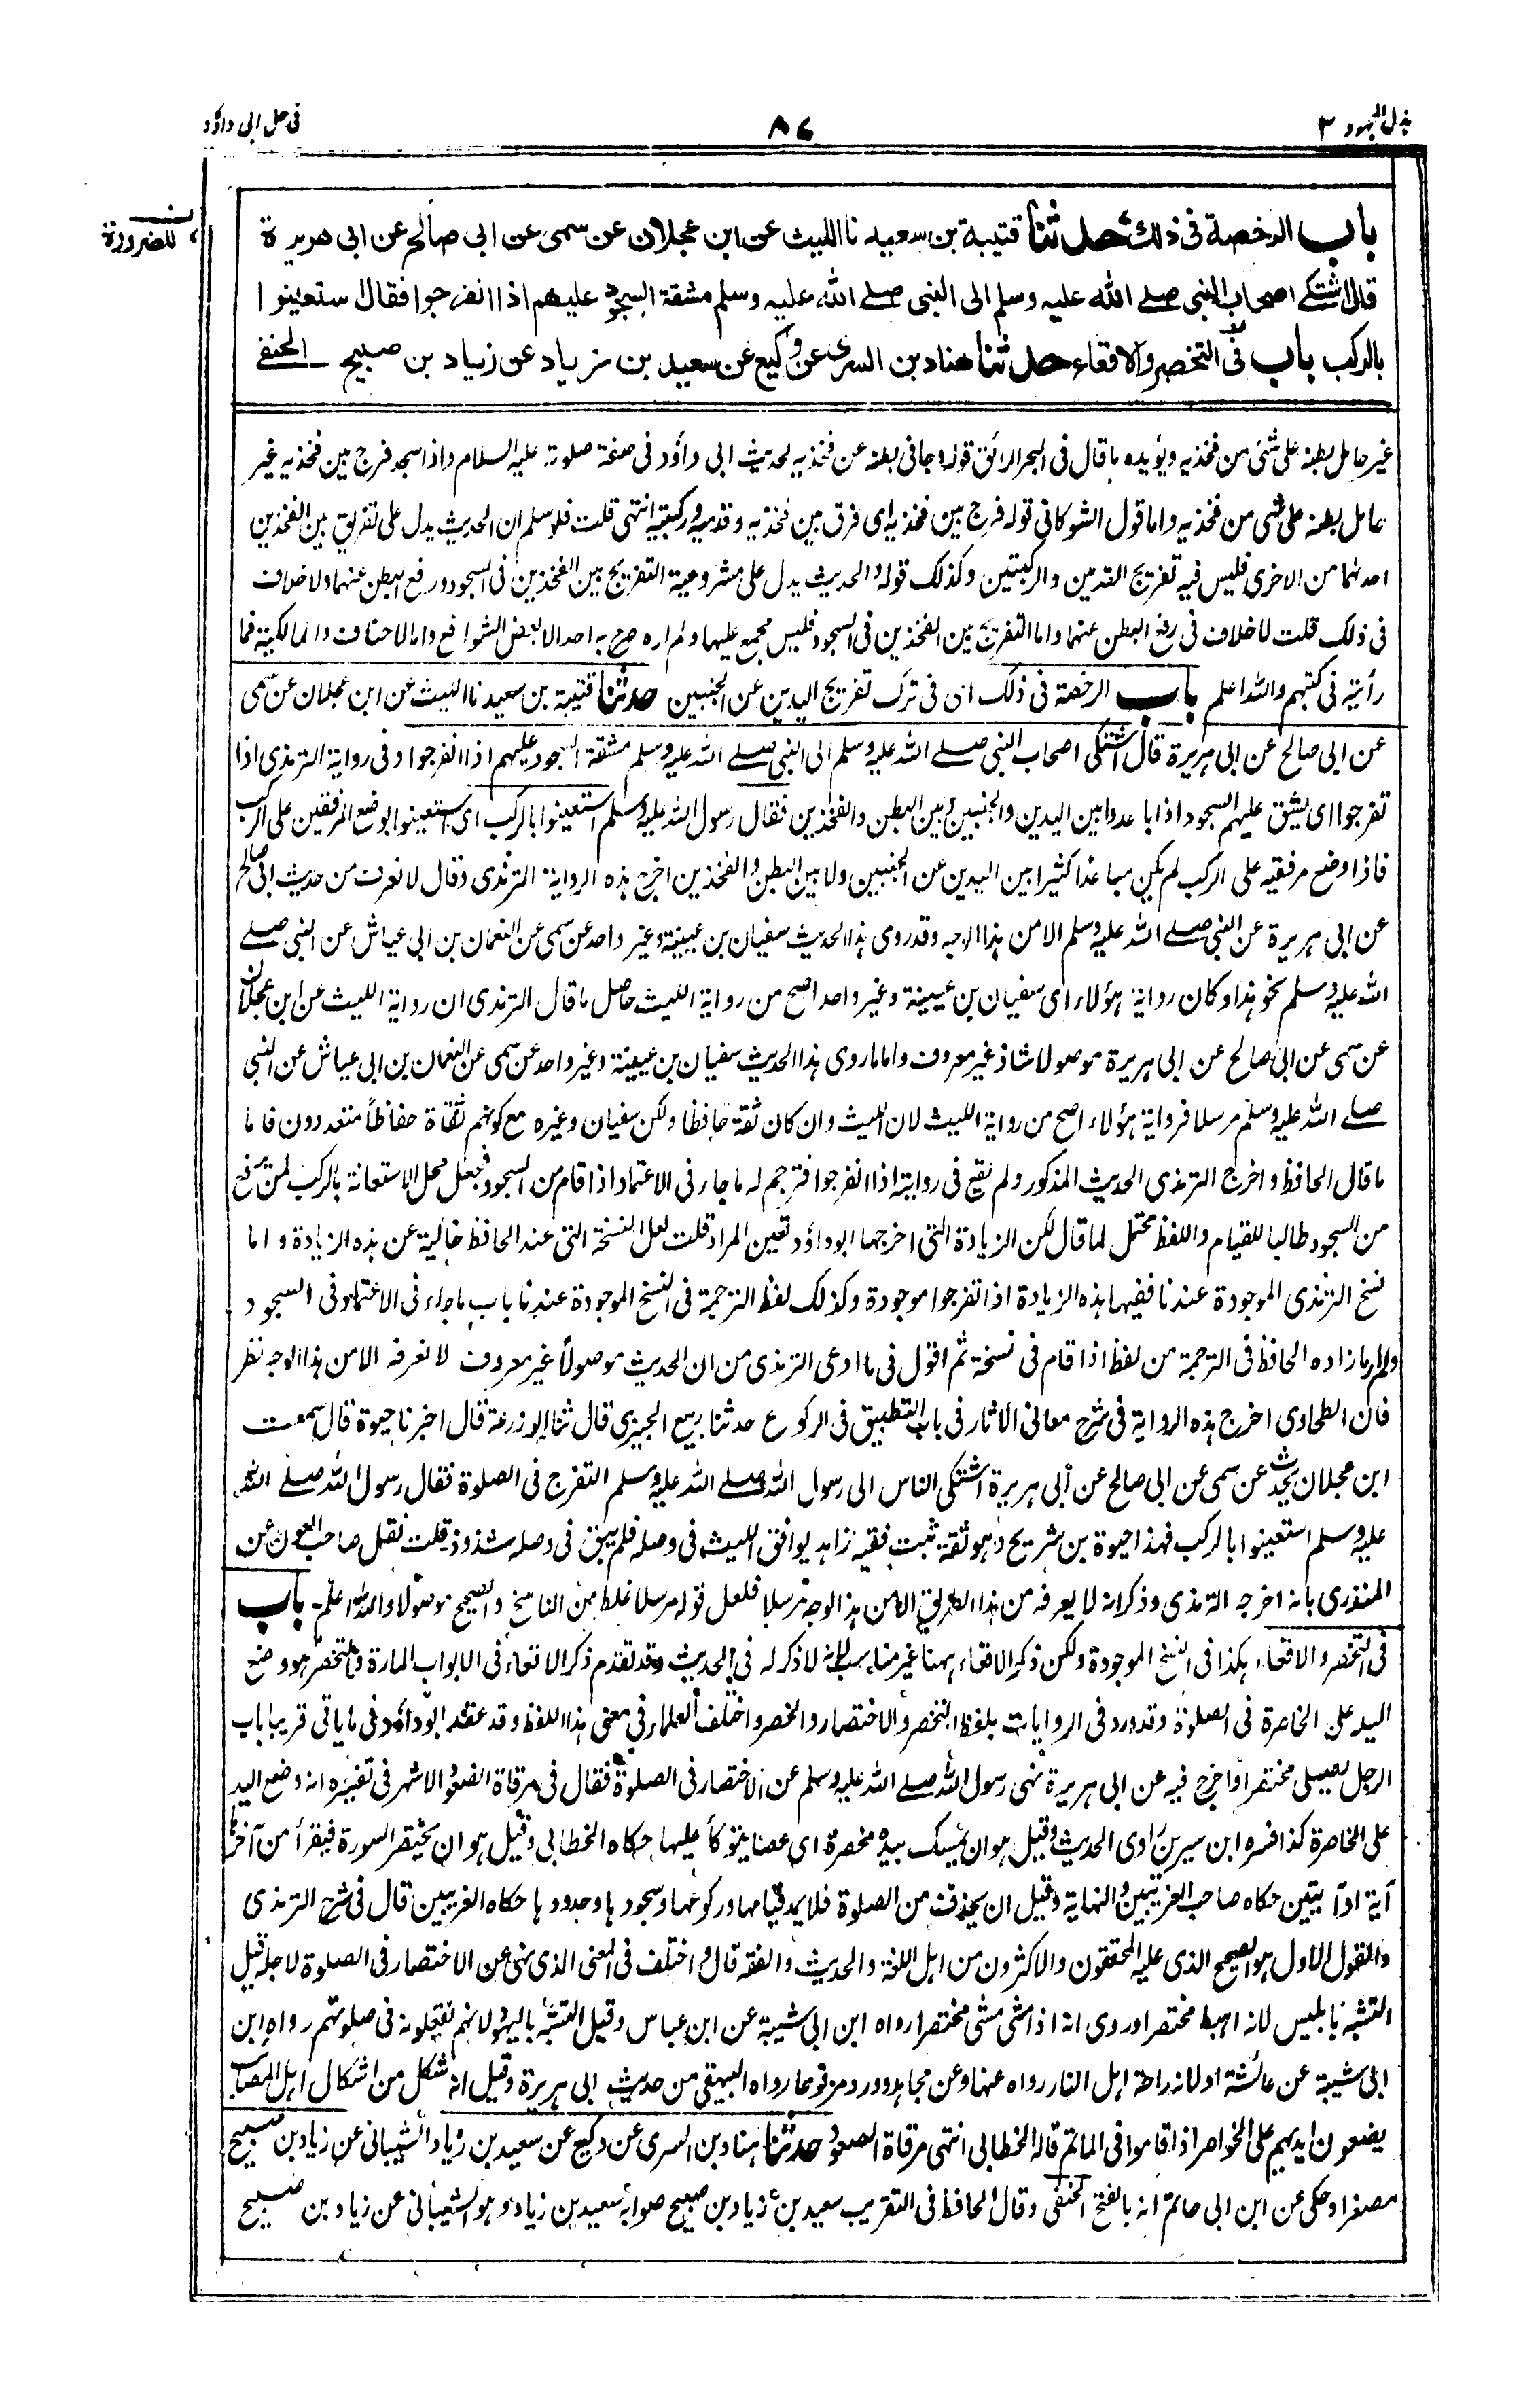 بذل المجهود ٣
٨٧
فى حل ابى داؤد
باب الرخصة فى ذلك حدثنا قتيبة بن سعيد نا الليث عن ابن عجلان عن سمى عن ابى صالح عن ابى هريرة
للضرورة
قال اشتكى اصحاب النبى صلے الله عليه وسلم الى النبى صلے الله عليه وسلم مشقة السجود عليهم اذا انفرجوا فقال استعينوا
بالركب باب فى التخصر والاقعاء حدثنا هناد بن السرى عن وكيع عن سعيد بن زياد عن زياد بن صبيح الحنفى
غير حامل بطنه على شئى من فخذيه ويؤيده ما قال فى البحر الرائق قوله وجافى بطنه عن فخذيه لحديث ابى داؤد فى صفة صلوته عليه السلام واذا سجد فرج بين فخذيه غير
حامل بطنه على شئى من فخذيه واما قول الشوكانى قوله فرج بين فخذيه اى فرق بين فخذيه وقدميه وركبتيه انتهى قلت فلو سلم ان الحديث يدل على تفريق بين الفخذين
احدٰهما من الاخرى فليس فيه تفريج القدمين والركبتين وكذلك قوله والحديث يدل على مشروعية التفريج بين الفخذين فى السجود ورفع البطن عنهما ولا خلاف
فى ذلك قلت لا خلاف فى رفع البطن عنهما واما التفريق بين الفخذين فى السجود فليس مجمع عليها ولم اره صرح به احد الا بعض الشوافع واما الاحناف والمالكية فما
رأيته فى كتبهم والله اعلم باب الرخصة فى ذلك اى فى ترك تفريج اليدين عن الجنبين حدثنا قتيبة بن سعيد نا الليث عن ابن عجلان عن سمى
عن ابى صالح عن ابى هريرة قال اشتكى اصحاب النبى صلے الله عليه وسلم الى النبى صلے الله عليه وسلم مشقة السجود عليهم اذا انفرجوا وفى رواية الترمذى اذا
تفرجوا اى يشق عليهم السجود اذا باعدوا بين اليدين والجنبين وبين البطن والفخذين فقال رسول الله عليه وسلم استعينوا بالركب اى استعينوا بوضع المرفقين على الركب
فاذا وضع مرفقيه على الركب لم يكن مباعدا كثيرا بين اليدين عن الجنبين ولا بين البطن والفخذين اخرج هذه الرواية الترمذى وقال لا نعرف من حديث ابى صالح
عن ابى هريرة عن النبى صلے الله عليه وسلم الا من هذا الوجه وقد روى هذا الحديث سفيان بن عيينة وغير واحد عن سمى عن النعمان بن ابى عياش عن النبى صلے
الله عليه وسلم نحو هذا وكان رواية هؤلاء اى سفيان بن عيينة وغير واحد اصح من رواية الليث حاصل ما قال الترمذى ان رواية الليث عن ابن عجلان
عن سمى عن ابى صالح عن ابى هريرة موصولا شاذ غير معروف واما ما روى هذا الحديث سفيان بن عيينة وغير واحد عن سمى عن النعمان بن ابى عياش عن النبى
صلے الله عليه وسلم مرسلا فرواية هؤلاء اصح من رواية الليث لان الليث وان كان ثقة حافظا ولكن سفيان وغيره مع كونهم ثقاة حفاظاً متعددون فاما
ما قال الحافظ واخرج الترمذى الحديث المذكور ولم يقع فى روايته اذا انفرجوا فترجم له ما جاء فى الاعتماد اذا قام من السجود فجعل محل الاستعانة بالركب لمن يرفع
من السجود طالبا للقيام واللفظ محتمل لما قال لكن الزيادة التى اخرجها ابو داؤد تعين المراد قلت لعل النسخة التى عند الحافظ خالية عن هذه الزيادة واما
نسخ الترمذى الموجودة عندنا ففيها هذه الزيادة اذا تفرجوا موجودة وكذلك لفظ الترجمة فى النسخ الموجودة عندنا باب ما جاء فى الاعتماد فى السجود
ولم ار ما زاده الحافظ فى الترجمة من لفظ اذا قام فى نسخة ثم اقول فى ما ادعى الترمذى من ان الحديث موصولاً غير معروف لا نعرفه الا من هذا الوجه نظر
فان الطحاوى اخرج هذه الرواية فى شرح معانى الآثار فى باب التطبيق فى الركوع حدثنا ربيع الجيزى قال ثنا ابو زرعة قال اخبرنا حيوة قال سمعت
ابن عجلان يحدث عن سمى عن ابى صالح عن أبى هريرة اشتكى الناس الى رسول الله صلے الله عليه وسلم التفرج فى الصلوة فقال رسول الله صلے الله
عليه وسلم استعينوا بالركب فهذا حيوة بن شريح وهو ثقة ثبت فقيه زاهد يوافق الليث فى وصله فلم يبق فى وصله شذوذ قلت نقل صاحب العون عن
المنذرى بانه اخرجه الترمذى وذكر انه لا يعرفه من هذا الطريق الا من هذا الوجه مرسلا فلعل قوله مرسلا غلط من الناسخ والصحيح موصولا والله اعلم باب
فى التخصر والاقعاء هكذا فى النسخ الموجودة ولكن ذكر الاقعاء ههنا غير مناسب لانه لا ذكر له فى الحديث وقد تقدم ذكر الاقعاء فى الابواب المارة والتخصر هو وضع
اليد على الخاصرة فى الصلوة وقد ورد فى الروايات بلفظ التخصر والاختصار والخصر واختلف العلماء فى معنى هذا اللفظ وقد عقد ابو داؤد فى ما ياتى قريبا باب
الرجل يصلى مختصرا واخرج فيه عن ابى هريرة نهى رسول الله صلے الله عليه وسلم عن الاختصار فى الصلوة فقال فى مرقاة الصعود الاشهر فى تفسيره انه وضع اليد
على الخاصرة كذا فسره ابن سيرين راوى الحديث وقيل هو ان يمسك بيده مخصرة اى عصا يتوكأ عليها حكاه الخطابى وقيل هو ان يختصر السورة فيقرأ من آخرها
آية او آيتين حكاه صاحب الغريبين والنهاية وقيل ان يحذف من الصلوة فلا يمد قيامها وركوعها وسجودها وحدودها حكاه الغريبين قال فى شرح الترمذى
والقول الاول هو الصحيح الذى عليه المحققون والاكثرون من اهل اللغة والحديث والفقه قال واختلف فى المعنى الذى نهى عن الاختصار فى الصلوة لاجله قيل
التشبه بابليس لانه اهبط مختصرا وروى انه اذا مشى مشى مختصرا رواه ابن ابى شيبة عن ابن عباس وقيل التشبه باليهود لانهم يفعلونه فى صلوتهم رواه ابن
ابى شيبة عن عائشة او لانه راحة اهل النار رواه عنها وعن مجاهد وورد مرفوعا رواه البيهقى من حديث ابى هريرة وقيل انه شكل من اشكال اهل المصائب
يضعون ايديهم على الخواصر اذا قاموا فى الماتم قاله الخطابى انتهى مرقاة الصعود حدثنا هناد بن السرى عن وكيع عن سعيد بن زياد الشيبانى عن زياد بن صبيح
مصغرا وحكى عن ابن ابى حاتم انه بالفتح الحنفى وقال الحافظ فى التقريب سعيد بن زياد بن صبيح صوابه سعيد بن زياد وهو الشيبانى عن زياد بن صبيح